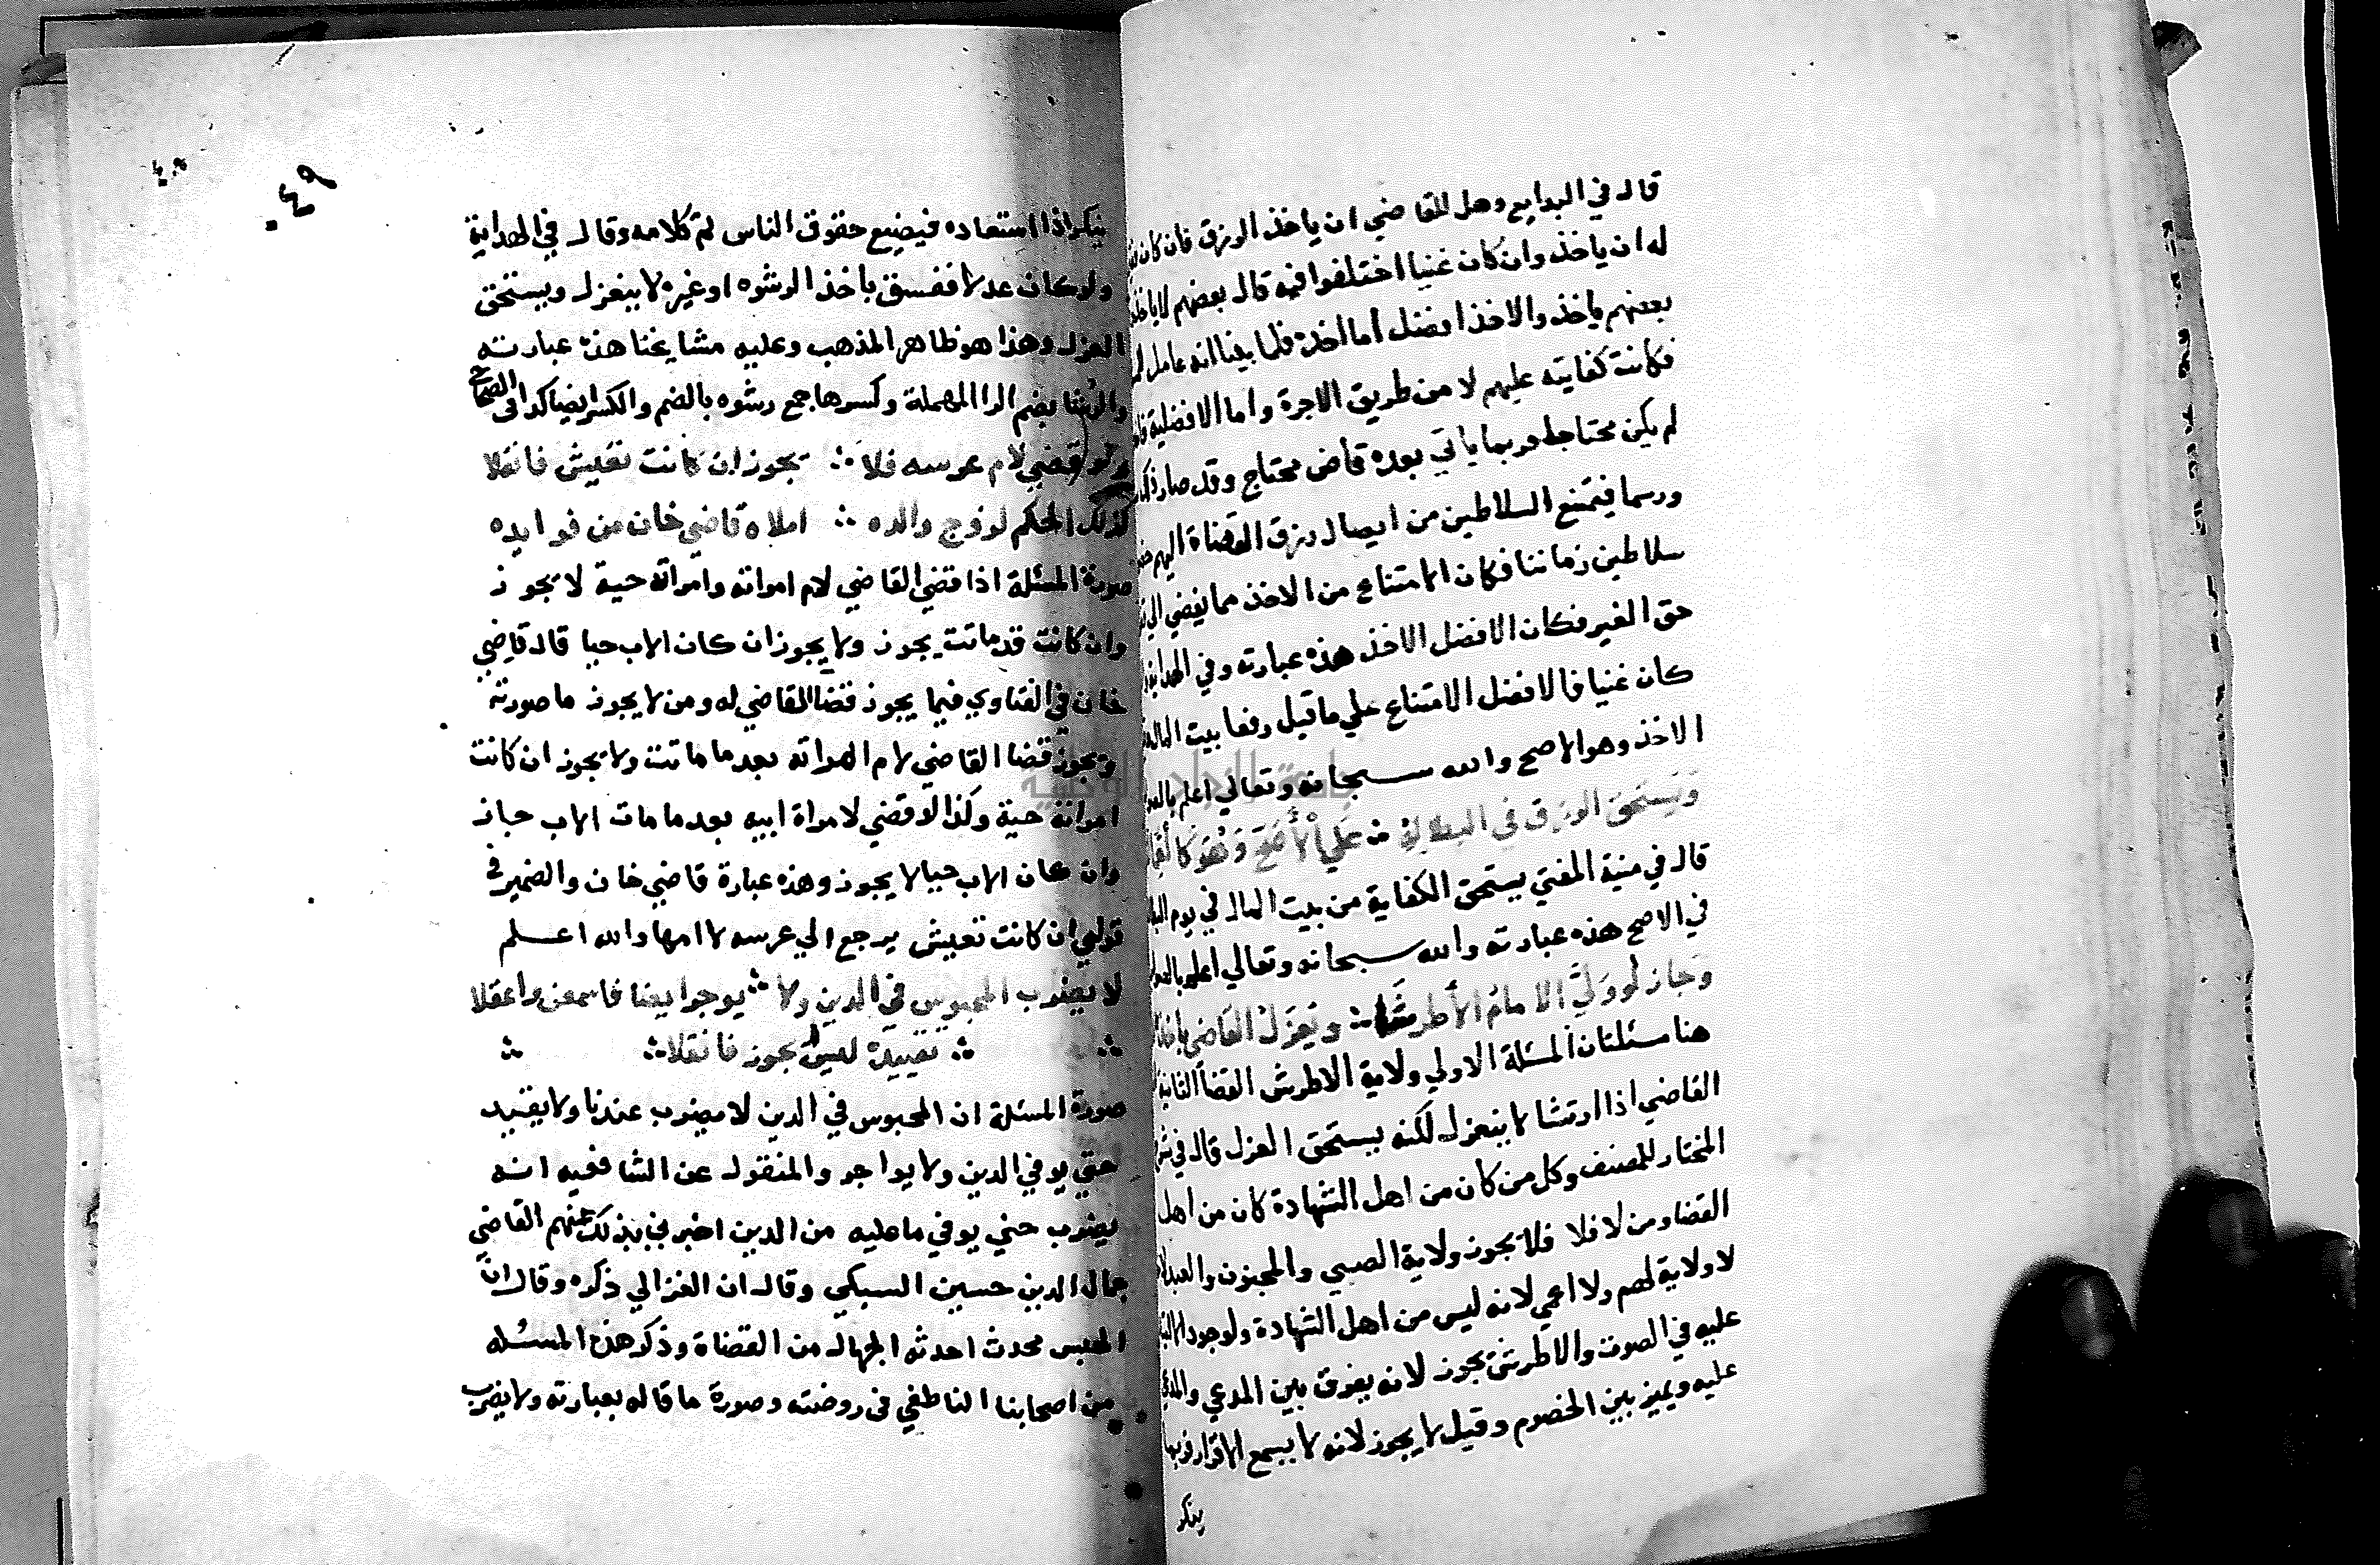 قال في البدايع وهل للقاضي ان ياخذ الرزق فان كان
له ان ياخذ وان كان غنيا اختلفوا فيه قال بعضهم لا ياخذ
بعضهم ياخذ والاخذ افضل أما اخذه فلما بينا انه عامل
فكانت كفايته عليهم لا من طريق الاجرة واما الافضلية
لم يكن محتاجا فربما ياتي بعده قاض محتاج وقد صار
ورسما فيمتنع السلاطين من ايصال رزق القضاة اليهم
سلاطين زماننا فكان الامتناع من الاخذ مما يفضي الي
حق الغير فكان الافضل الاخذ هذه عبارته وفي الهداية
كان غنيا فالافضل الامتناع علي ما قيل رفعا بيت المال
الاخذ وهو الاصح والله سبحانه وتعالي اعلم
وَيستحق الرزق في البطالة ∴ علَي الأصَح وَهْوَ
قال في منية المفتي يستحق الكفاية من بيت المال في يوم
في الاصح هذه عبارته والله سبحانه وتعالي اعلم
وَجازَ لَو وَلَّيَ الامامُ الأطرشَا ∴ وَ القاضي
هنا مسئلتان المسئلة الاولي ولاية الاطرش القضا الثانية
القاضي اذا ارتشا لا ينعزل لكنه يستحق العزل قال في
المختار للمصنف وكل من كان من اهل الشهادة كان من اهل
القضا ومن لا فلا فلا يجوز ولاية الصبي والمجنون والعبد
لا ولاية لهم ولا اعمي لانه ليس من اهل الشهادة ولوجود
عليه في الصوت والاطرش يجوز لانه يفرق بين المدعي
عليه ويميز بين الخصوم وقيل لا يجوز لانه لا يسمع الاقرار فربما
ينكر
٠٤٩
ينكر اذا استعاده فيضيع حقوق الناس تم كلامه وقال في الهداية
ولو كان عدلا ففسق باخذ الرشوه او غيره لا ينعزل ويستحق
العزل وهذا هو ظاهر المذهب وعليه مشايخنا هذه عبارته
والرشا بضم الرا المهملة وكسرها جمع رشوه بالضم والكسر ايضا كذا في الصحاح
ولو قضي لام عرسه فلا ∴ يجوز ان كانت تعيش فانقلا
كذلك الحكم لزوج والده ∴ املاه قاضي خان من فوايده
صورة المسئلة اذا قضي القاضي لام امراته وامراته حية لا يجوز
وان كانت قد ماتت يجوز ولا يجوز ان كان الاب حيا قال قاضي
خان في الفتاوي فيما يجوز قضا القاضي له ومن لا يجوز ما صورته
ويجوز قضا القاضي لام امراته بعد ما ماتت ولا يجوز ان كانت
امراته حية وكذا لو قضي لامراة ابيه بعد ما مات الاب جاز
وان كان الاب حيا لا يجوز وهذه عبارة قاضي خان والضمير في
قولي ان كانت تعيش يرجع الي عرسه لا امها والله اعلم
لا يضرب المحبوس في الدين ولا ∴ يوجر ايضا فاسمعن واعقلا
∴ تقييده ليس يجوز فانقلا ∴
صورة المسئلة ان المحبوس في الدين لا يضرب عندنا ولا يقيد
حتي يوفي الدين ولا يواجر والمنقول عن الشافعيه انه
يضرب حتي يوفي ما عليه من الدين اخبرني بذلك عنهم القاضي
جمال الدين حسين السبكي وقال ان الغزالي ذكره وقال ان
الحبس محدث احدثه الجهال من القضاة وذكر هذه المسئله
من اصحابنا الناطفي في روضته وصورة ما قاله بعبارته ولا يضرب